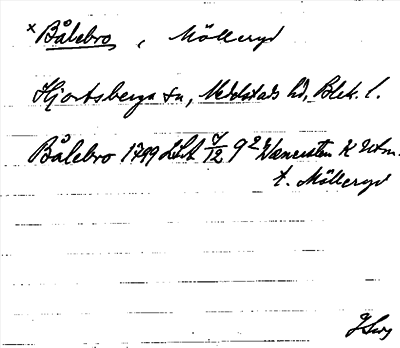 x Bålebro, Mölleryd
Hjortsberga sn, Medelstads hd, Blek. l.
Bålebro 1799 LSA 7/12 9² Wäneristen K Utm.
t. Mölleryd